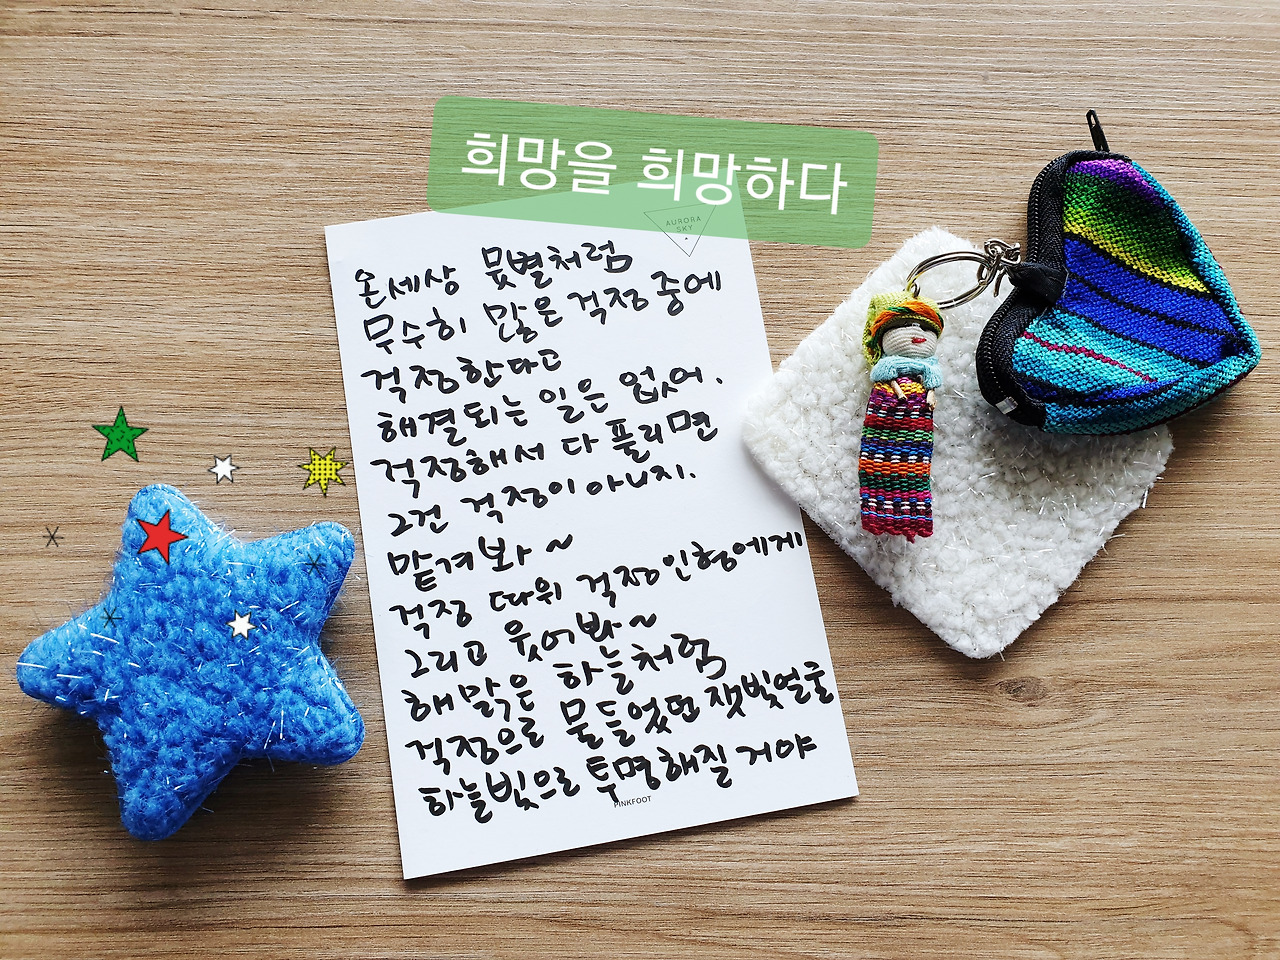 희망을 희망하다
AURORA
SKY
온세상 뭇별처럼
무수히 많은 걱정 중에
걱정한다고
해결되는 일은 없어.
걱정해서 다 풀리면
그건 걱정이 아니지.
맡겨봐 ~
걱정 따위 걱정인형에게
그리고 웃어봐~
해맑은 하늘처럼
걱정으로 물들었던 잿빛얼굴
하늘빛으로 투명해질 거야
PINKFOOT